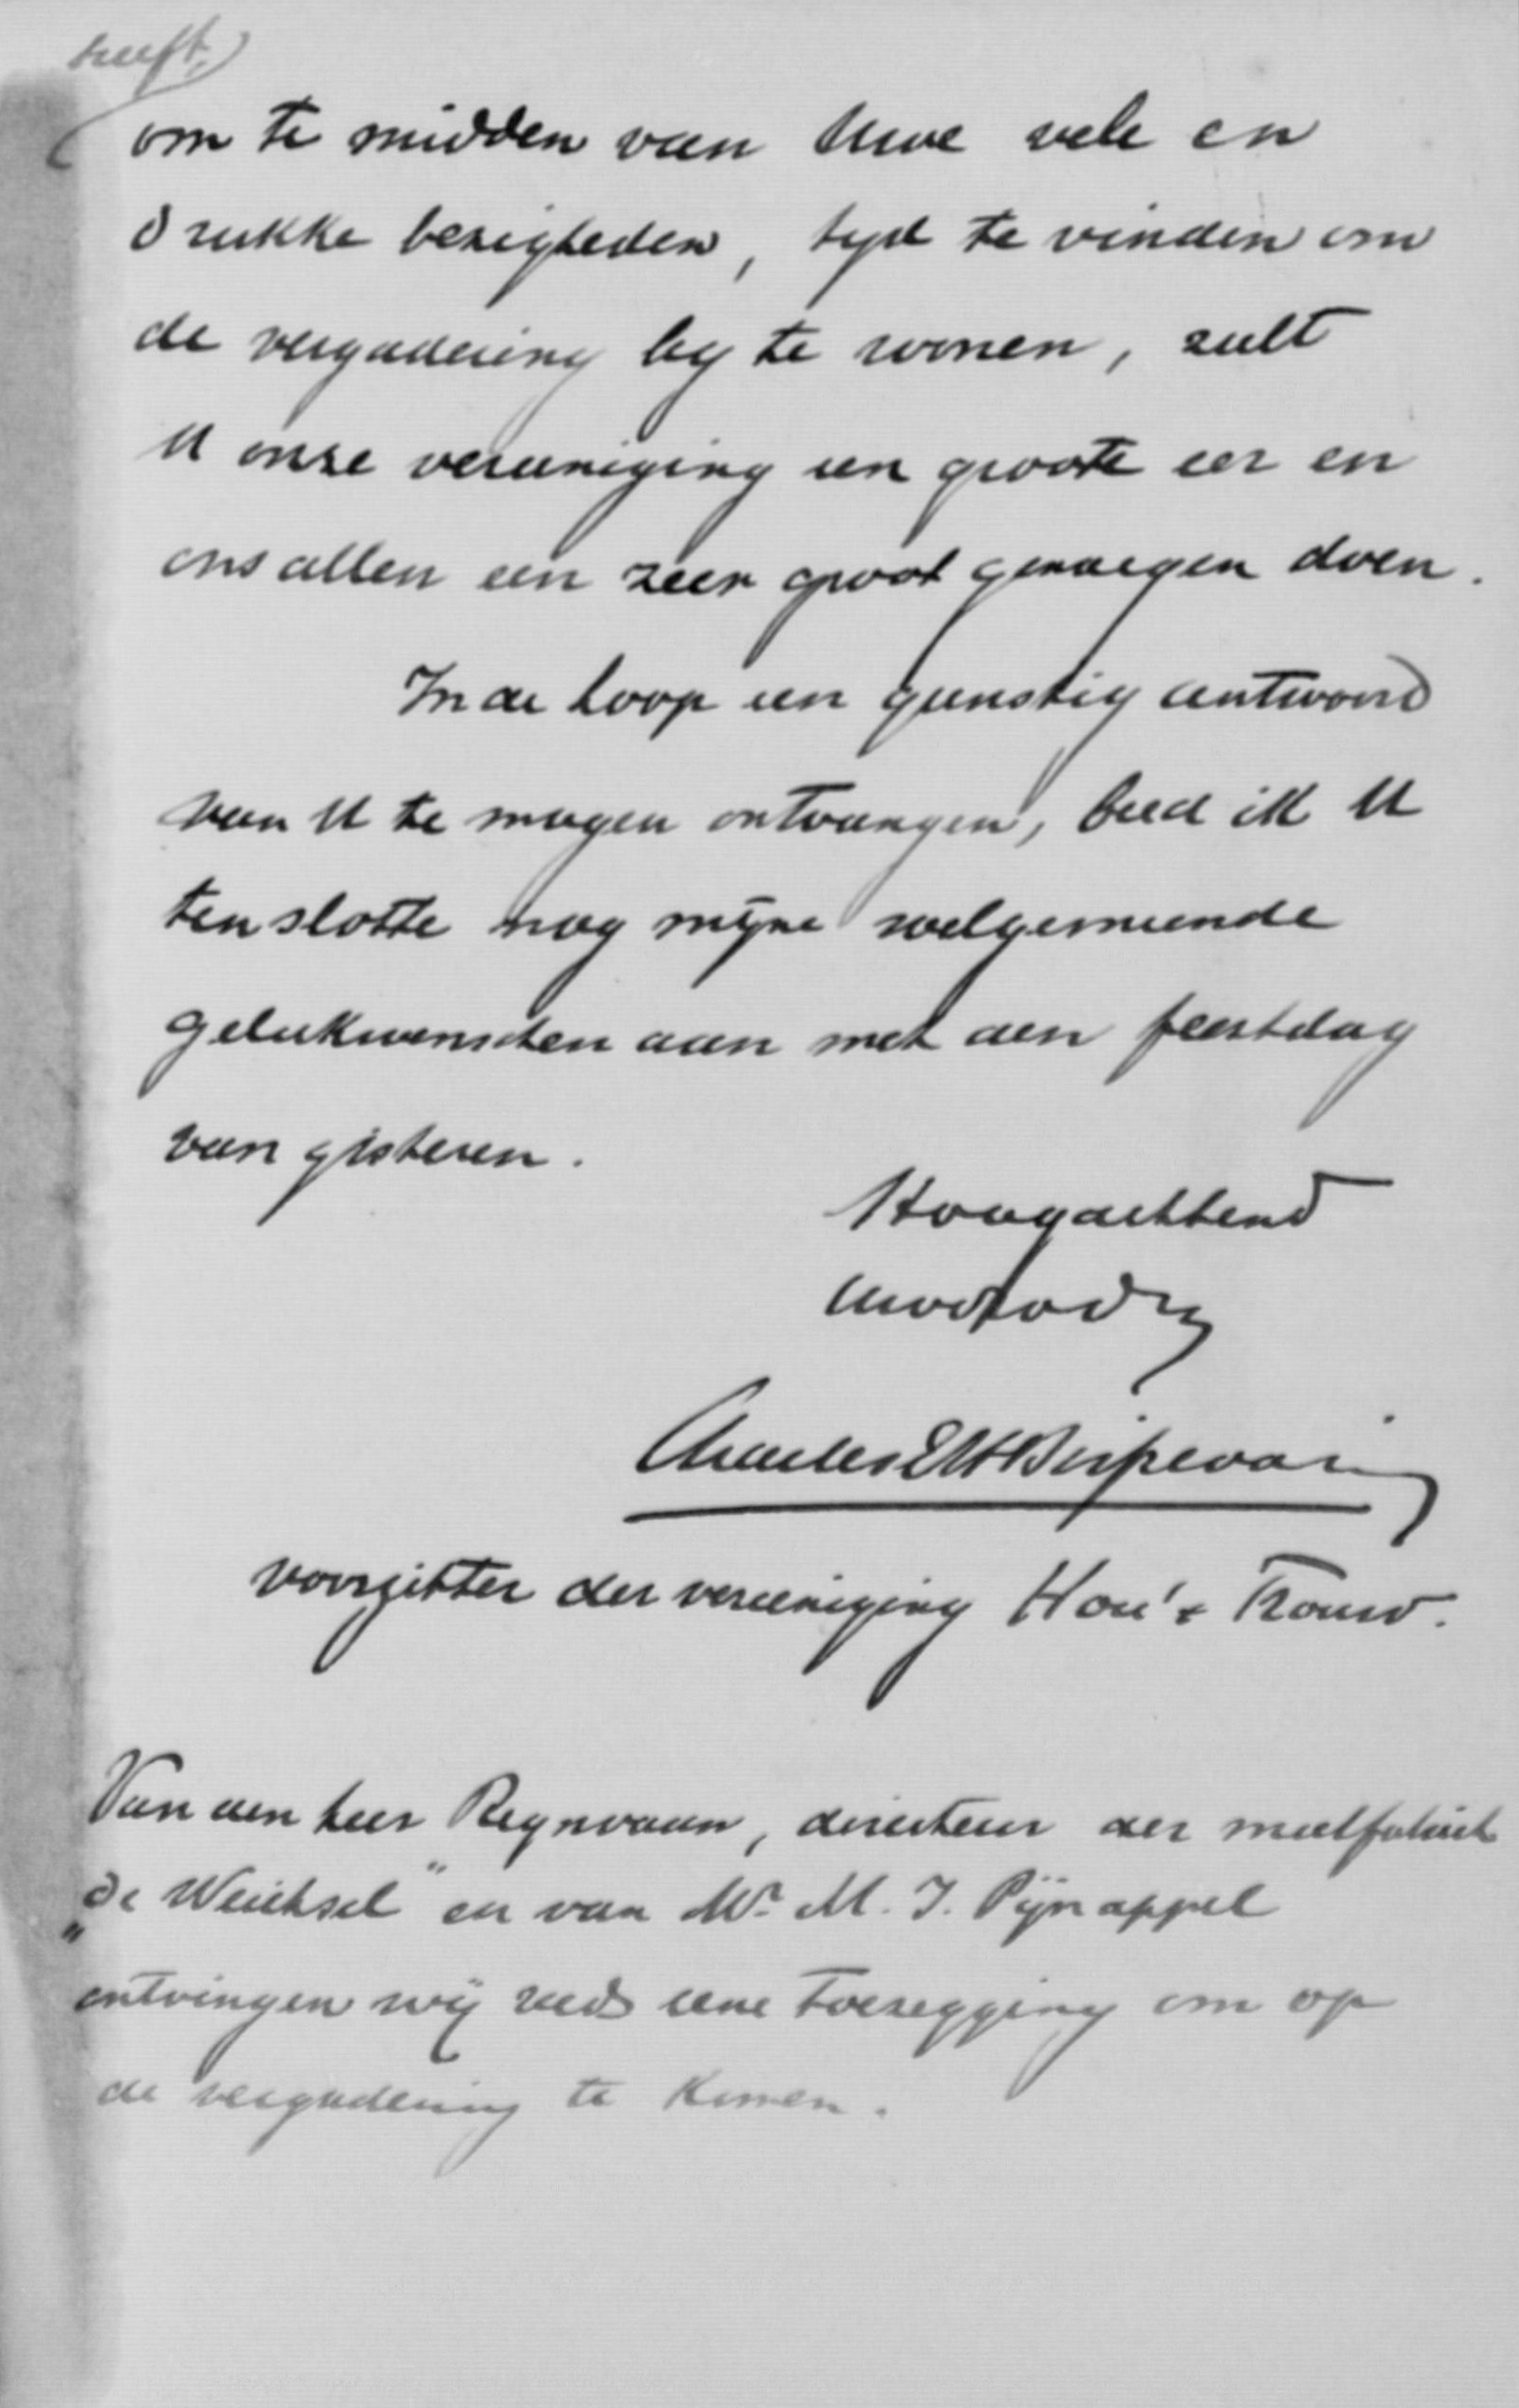 heeft,
om te midden van Uwe vele en
drukke bezigheden, tyd te vinden om
de vergadering by te wonen, zult
U onze vereeniging een groote eer en
ons allen een zeer groot genoegen doen.
In de hoop een gunstig antwoord
van U te mogen ontvangen, bied ik U
ten slotte nog mijne welgemeende
gelukwenschen aan met den feestdag
van gisteren.
Hoogachtend
Charles EH
voorzitter der vereeniging Hou' e Trouw.
Van den heer Reynvaan, directeur der meelfabriek
„de Weichsel" en van Mr. M. J. Pijnappel
ontvingen wij reeds eene toezegging om op
de vergadering te komen.